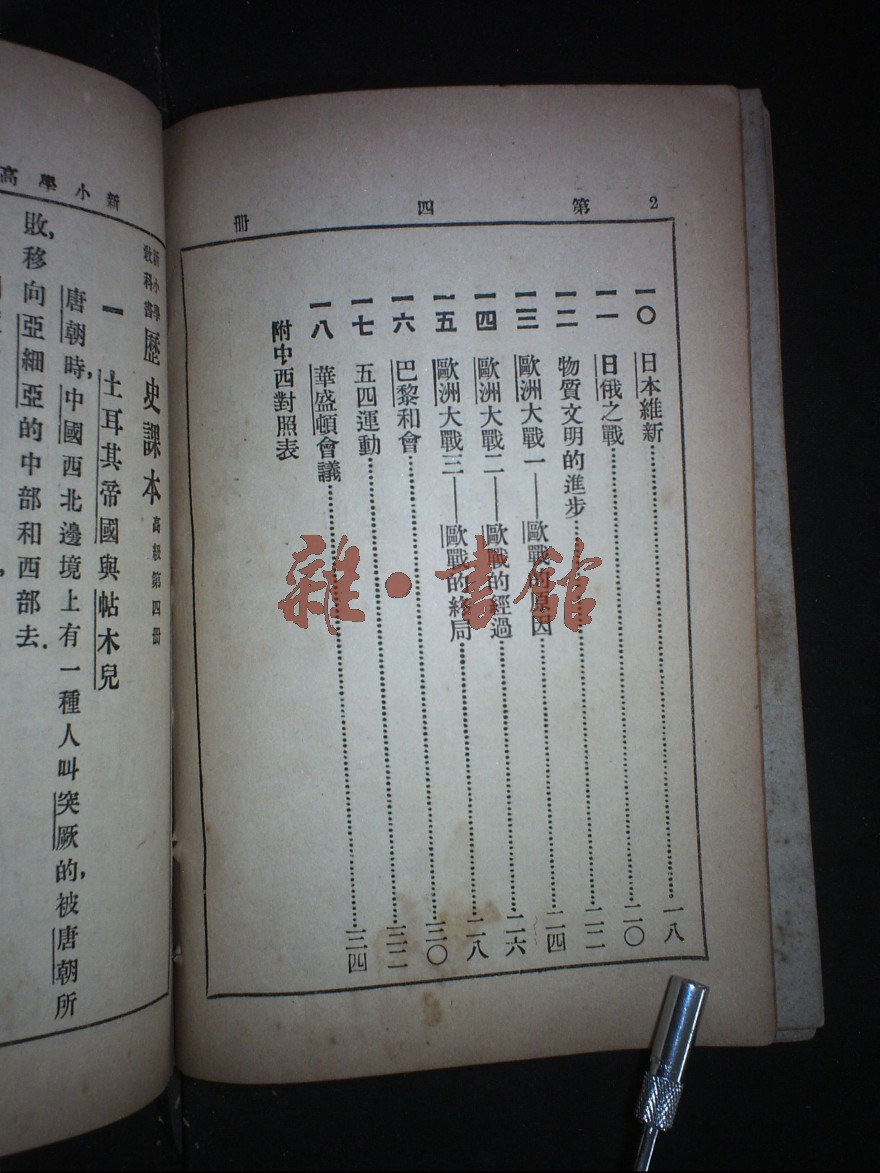 2 第四冊
一〇 日本維新……一八
一一 日俄之戰……二〇
一二 物質文明的進步……二二
一三 歐洲大戰一——歐戰的原因……二四
一四 歐洲大戰二——歐戰的經過……二六
一五 歐洲大戰三——歐戰的終局……二八
一六 巴黎和會……三〇
一七 五四運動……三二
一八 華盛頓會議……三四
附中西對照表
雜·書館
新小學高
新小學教科書 歷史課本 高級第四冊
一 土耳其帝國與帖木兒
唐朝時,中國西北邊境上有一種人叫突厥的,被唐朝所
敗,移向亞細亞的中部和西部去.